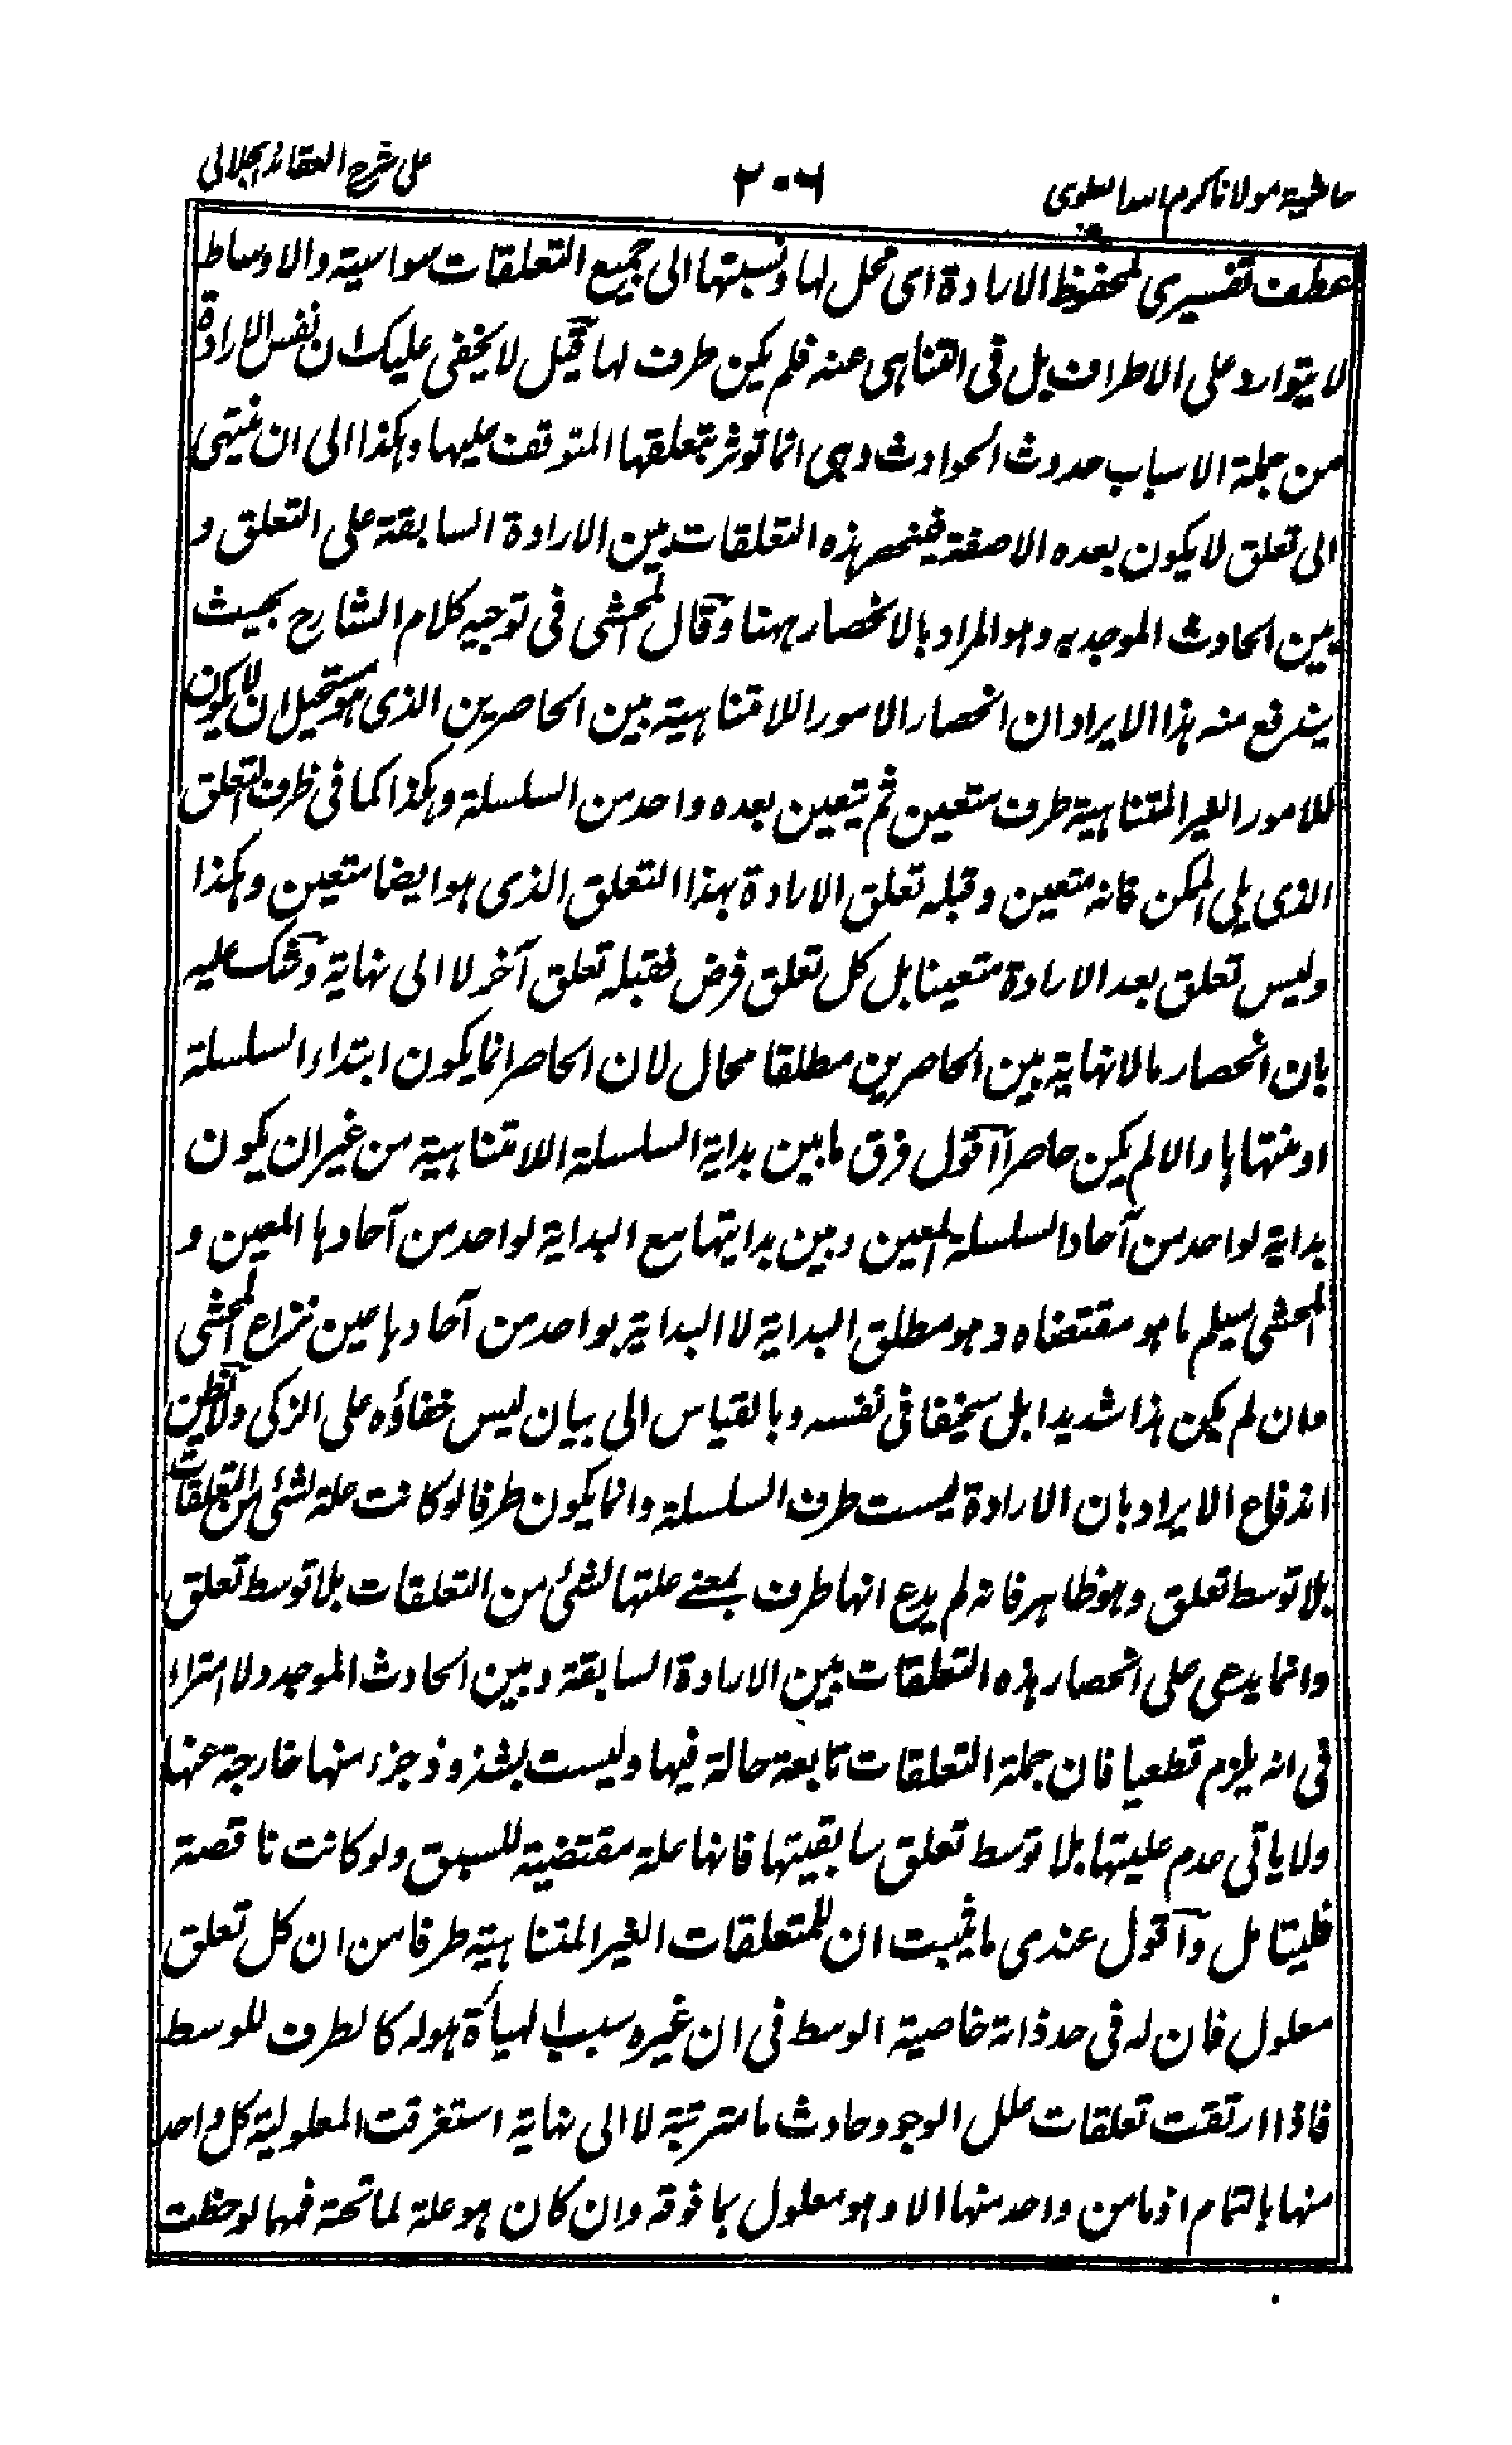 حاشية مولانا كرم اسد ٢٠٦ على شرح العقائد الجلالى
عطف تفسيرى لمحفوظ الارادة اى محل لها ونسبتها الى جميع التعلقات سواسية والاوساط
لا يتوارد على الاطراف بل فى التناهى عنه فلم يكن طرف لها قيل لا يخفى عليك ان نفس الارادة
من جملة الاسباب حدوث الحوادث وهى انما توثر بتعلقها المتوقف عليها وهكذا الى ان ينتهى
الى تعلق لا يكون بعده الا صفة فينحصر هذه التعلقات بين الارادة السابقة على التعلق و
بين الحادث الموجد به وهو المراد بالانحصار ههنا وقال المحشى فى توجيه كلام الشارح بحيث
يندفع منه هذا الايراد ان انحصار الامور اللامتناهية بين الحاصرين الذى هو مستحيل ان لا يكون
للامور الغير المتناهية طرف متعين ثم يتعين بعده واحد من السلسلة وهكذا كما فى طرف التعلق
الذى يلى الممكن فانه متعين وقبله تعلق الارادة بهذا التعلق الذى هو ايضا متعين وهكذا
وليس تعلق بعد الارادة متعينا بل كل تعلق فرض فقبله تعلق آخر لا الى نهاية وشك عليه
بان انحصار مالا نهاية بين الحاصرين مطلقا محال لان الحاصر انما يكون ابتداء السلسلة
او منتهاها والا لم يكن حاصرا اقول فرق ما بين بداية السلسلة اللامتناهية من غير ان يكون
بداية لواحد من آحاد السلسلة المعين وبين بدايتها مع البداية لواحد من آحادها المعين و
المحشى سيلم ما هو مقتضاه وهو مطلق البداية لا البداية بواحد من آحادها عين نزاع المحشى
وان لم يكن هذا شديدا بل سخيفا فى نفسه وبالقياس الى بيان ليس خفاؤه على الزكى ولا تظن
اندفاع الايراد بان الارادة ليست طرف السلسلة وانما يكون طرفا لو كانت علة لشئى من التعلقات
بلا توسط تعلق وهو ظاهر فانه لم يدع انها طرف بمعنے علتها لشئى من التعلقات بلا توسط تعلق
وانما يدعى على انحصار هذه التعلقات بين الارادة السابقة وبين الحادث الموجد ولا امتراء
فى انه يلزم قطعيا فان جملة التعلقات تابعة حالة فيها وليست بشذوذ جزء منها خارجة عنها
ولا ياتى عدم عليتها بلا توسط تعلق سابقيتها فانها علة مقتضية للسبق ولو كانت ناقصة
فليتامل واقول عندى ما يثبت ان للمتعلقات الغير المتناهية طرفا من ان كل تعلق
معلول فان له فى حد ذاته خاصية الوسط فى ان غيره سبب لهيأة هو له كالطرف للوسط
فاذا ارتقت تعلقات علل الوجود حادث ما مترتبة لا الى نهاية استغرقت المعلولية كل واحد
منها بالتمام اذ ما من واحد منها الا وهو معلول بما فوقه وان كان هو علة لما تحته فمهما لوحظت